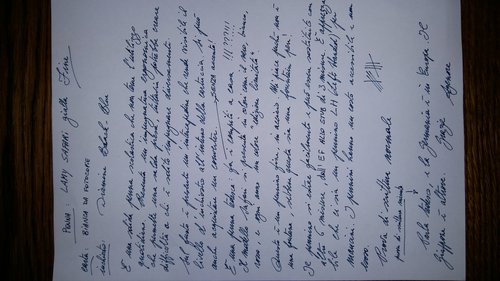 PENNA: LAMY SAFARI gialla Fine
carta: BIANCA DA FOTOCOPIE
inchiostro: Diamine Black-Blue
È una solida penna scolastica che non teme l'utilizzo
quotidiano. Presenta un'impugnatura ergonomica
che permette una salda presa, tuttavia potrebbe creare
difficoltà a chi è solito impugnare diversamente.
Sul fusto è presente un'intercapedine che rende visibile il
livello d'inchiostro all'interno della cartuccia. Si può
anche acquistare un converter. SENZA accento!
È una penna tedesca: fa i compiti a casa !!!???!!!
Il modello Safari si presenta in colori come il nero, bianco,
rosso, e ogni anno un colore "edizione limitata".
Questo è un pennino fine, in acciaio. Mi piace perché non è
una fontana, sebbene questa sia una fountain pen!
Il pennino si estrae facilmente e può essere sostituito con
altre 6 misure, dall'EF allo STUB di 3 misure. È apprezza
bile che ci sia un pennino LH (left handed) per
mancini. I pennini hanno un costo accessibile e non
Prova di scrittura normale
prova di scrittura minuta
Parlo tedesco, e la Germania è in Europa. Il
Giappone è altrove. Grazie Agenore